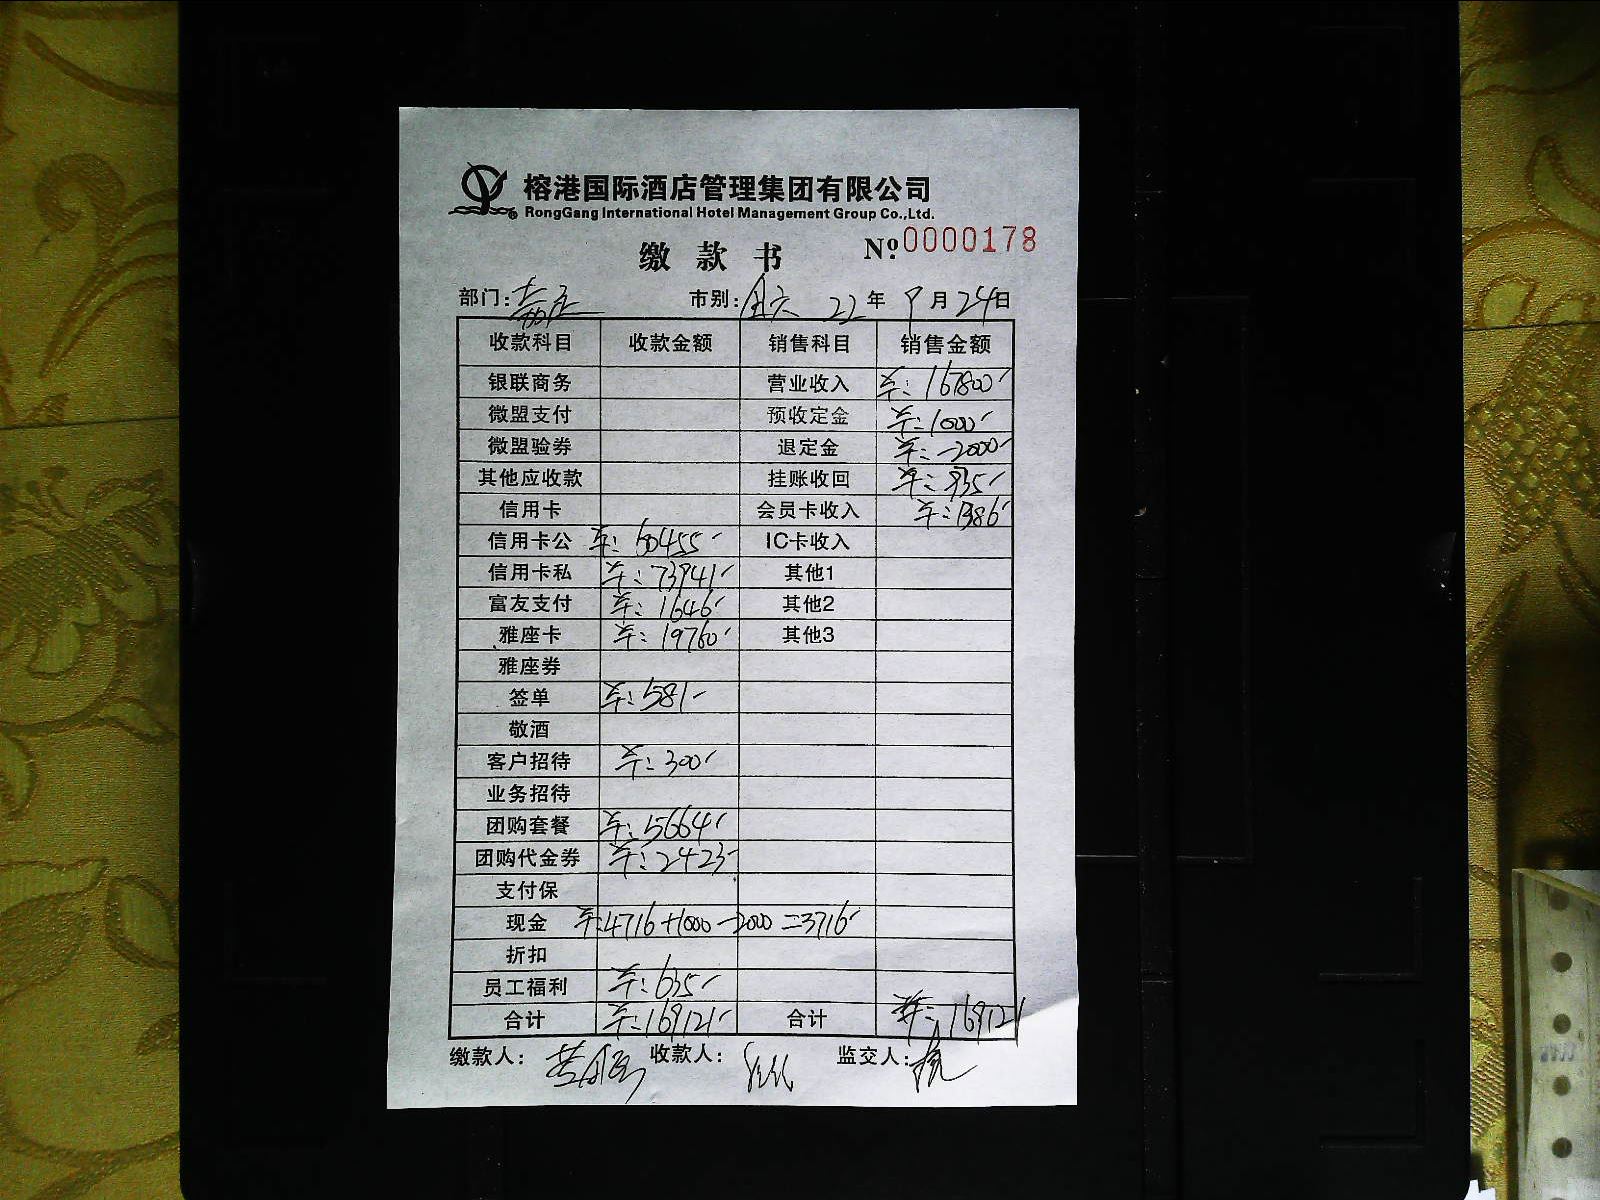 榕港国际酒店管理集团有限公司
RongGang International Hotel Management Group Co.,Ltd.
缴款书 №:0000178
部门: 市别: 22年9月24日
收款科目 收款金额 销售科目 销售金额
银联商务 营业收入 ¥:167800-
微盟支付 预收定金 ¥:1000-
微盟验券 退定金 ¥:-2000-
其他应收款 挂账收回 ¥:935-
信用卡 会员卡收入 ¥:1386-
信用卡公 ¥:60455- IC卡收入
信用卡私 ¥:73941- 其他1
富友支付 ¥:1646- 其他2
雅座卡 ¥:19760- 其他3
雅座券
签单 ¥:581-
敬酒
客户招待 ¥:300-
业务招待
团购套餐 ¥:5664-
团购代金券 ¥:2423-
支付保
现金 ¥:4716+1000-2000=3716-
折扣
员工福利 ¥:635-
合计 ¥:169121- 合计 ¥:169121
缴款人: 收款人: 监交人: